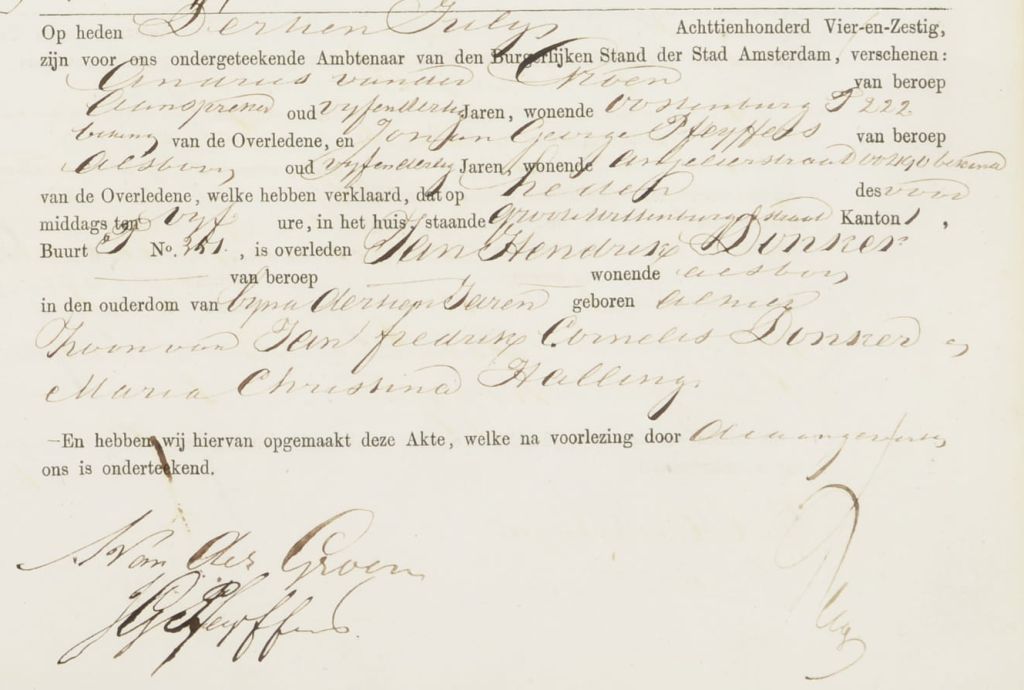 Op heden Dertien Julij Achttienhonderd Vier-en-Zestig,
zijn voor ons ondergeteekende Ambtenaar van den Burgerlijken Stand der Stad Amsterdam, verschenen:
Andries van der Groen van beroep
Aanspreker oud vijfendertig Jaren, wonende Oostenburg T 222
bekeng van de Overledene, en Johan George Pfeyffers van beroep
alsboven oud vijfendertig Jaren, wonende Angelierstraat bekend
van de Overledene, welke hebben verklaard, dat op heden des voor
middags ten vijf ure, in het huis, staande Groote Wittenburgerstraat Kanton 1,
Buurt T No. 351, is overleden Jan Hendrik Donker
van beroep wonende alsboven
in den ouderdom van bijna dertien Jaren geboren alhier
Zoon van Jan fredrik Cornelis Donker en
Maria Christina Halling
—En hebben wij hiervan opgemaakt deze Akte, welke na voorlezing door de aangevers en
ons is onderteekend.
A Van der Groen
JG Pfeyffers